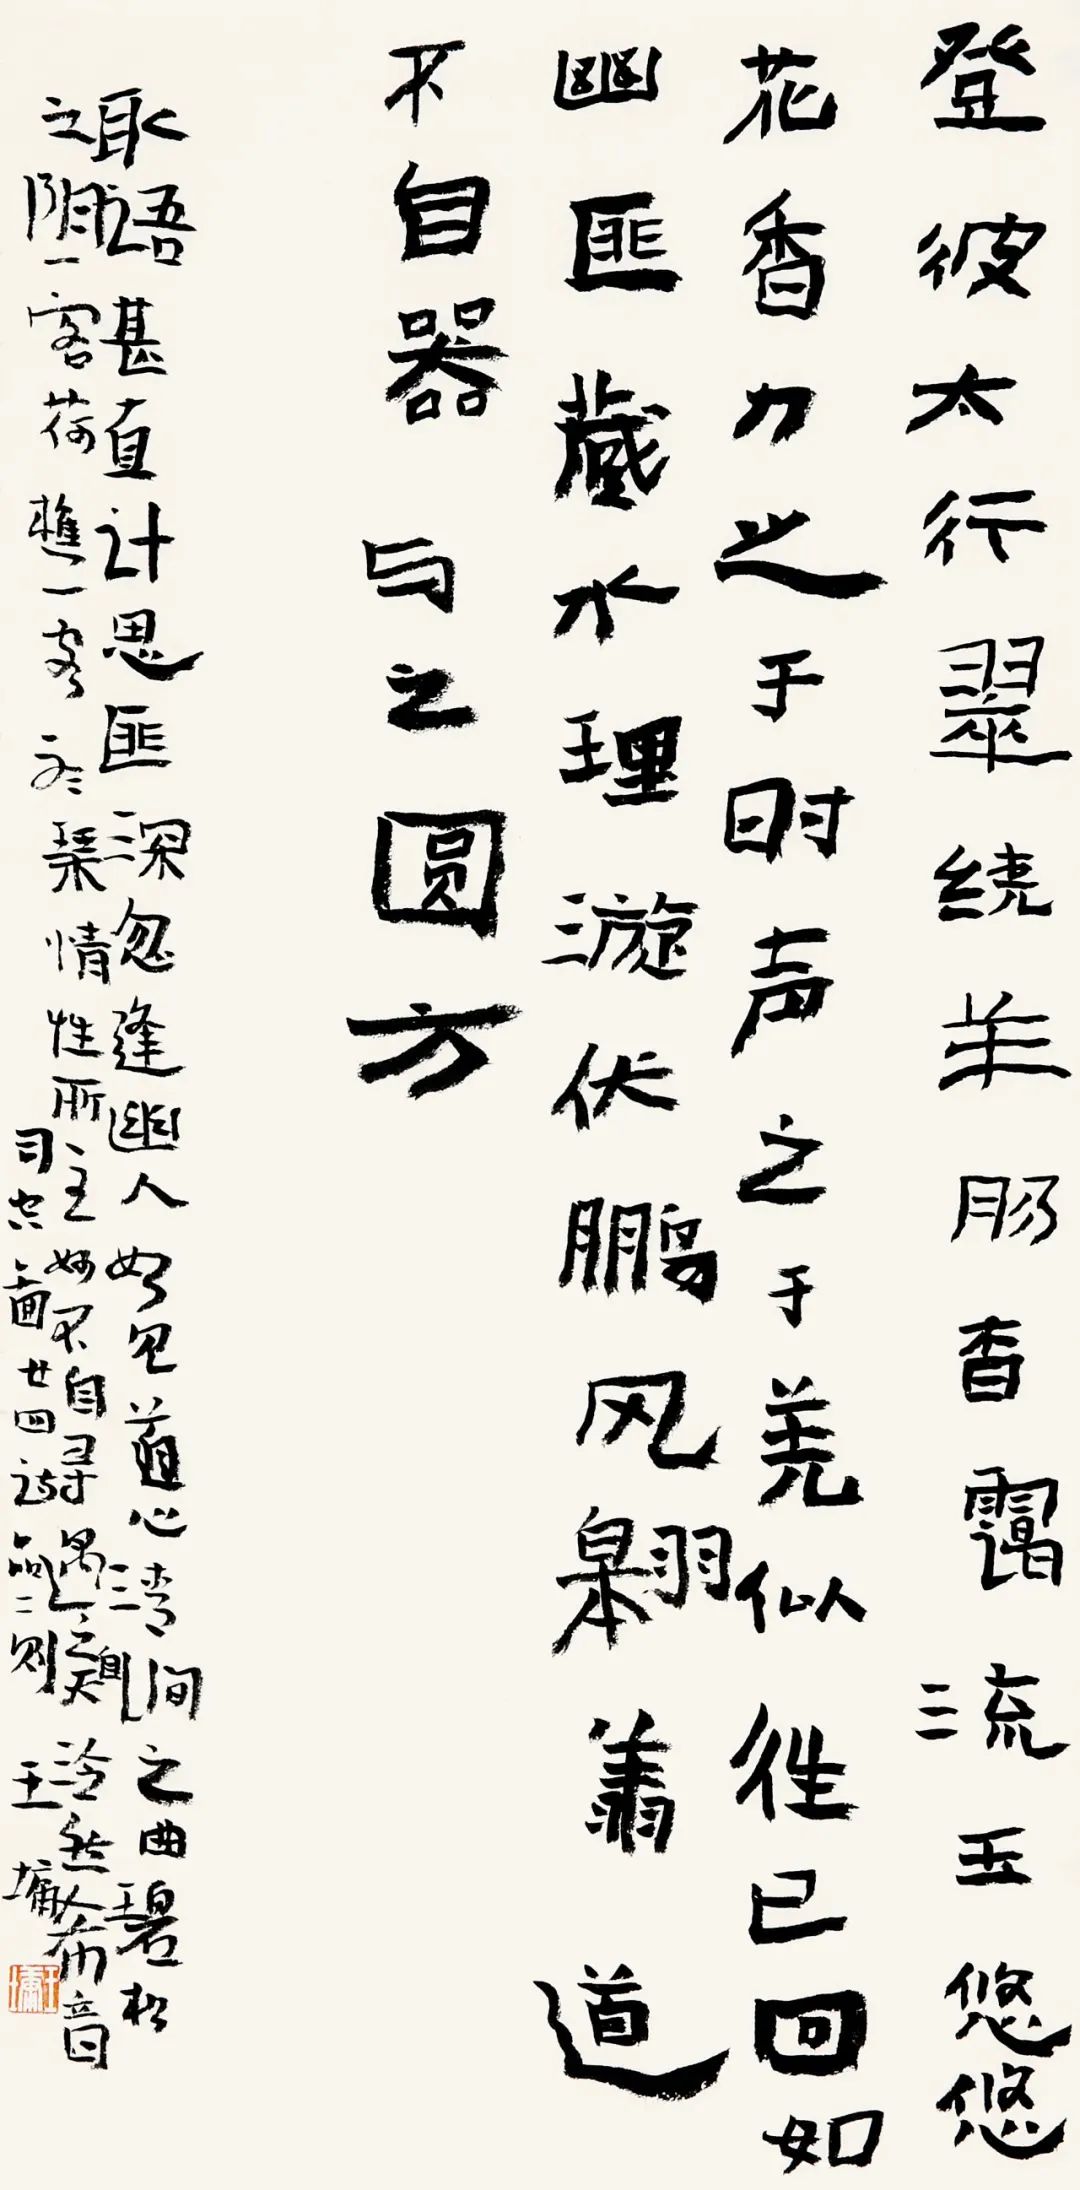 登彼太行翠绕羊肠杳霭流玉悠悠
花香力之于时声之于羌似往已回如
幽匪藏水理漩伏鹏风翱翔道
不自器与之圆方
取语甚直计思匪深忽逢幽人如见道心清涧之曲碧松
之阴一客荷樵一客听琴情性所至妙不自寻遇之自天泠然希音
司空图廿四诗品二则 王镛